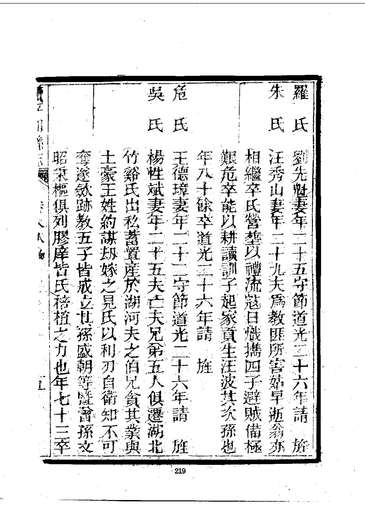 羅氏 劉先魁妻年二十五守節道光二十六年請 旌
朱氏 汪秀山妻年二十九夫為教匪所害姑早逝翁亦
相繼卒氏營塟以禮流寇日熾攜四子避賊備極
艱危卒能以耕讀訓子起家貢生汪波其次孫也
年八十餘卒道光二十六年請 旌
危氏 王德璋妻年二十二守節道光二十六年請 旌
吳氏 楊姓斌妻年二十五夫亡夫兄弟五人俱遷湖北
竹谿氏出私蓄置產於湖河夫之伯兄貪其業與
土豪王姓約謀刼嫁之見氏以利刃自衛知不可
奪遂斂跡教五子皆成立其孫盛朝等曁曾孫文
昭秉樞俱列膠庠皆氏榰梧之力也年七十三卒
219